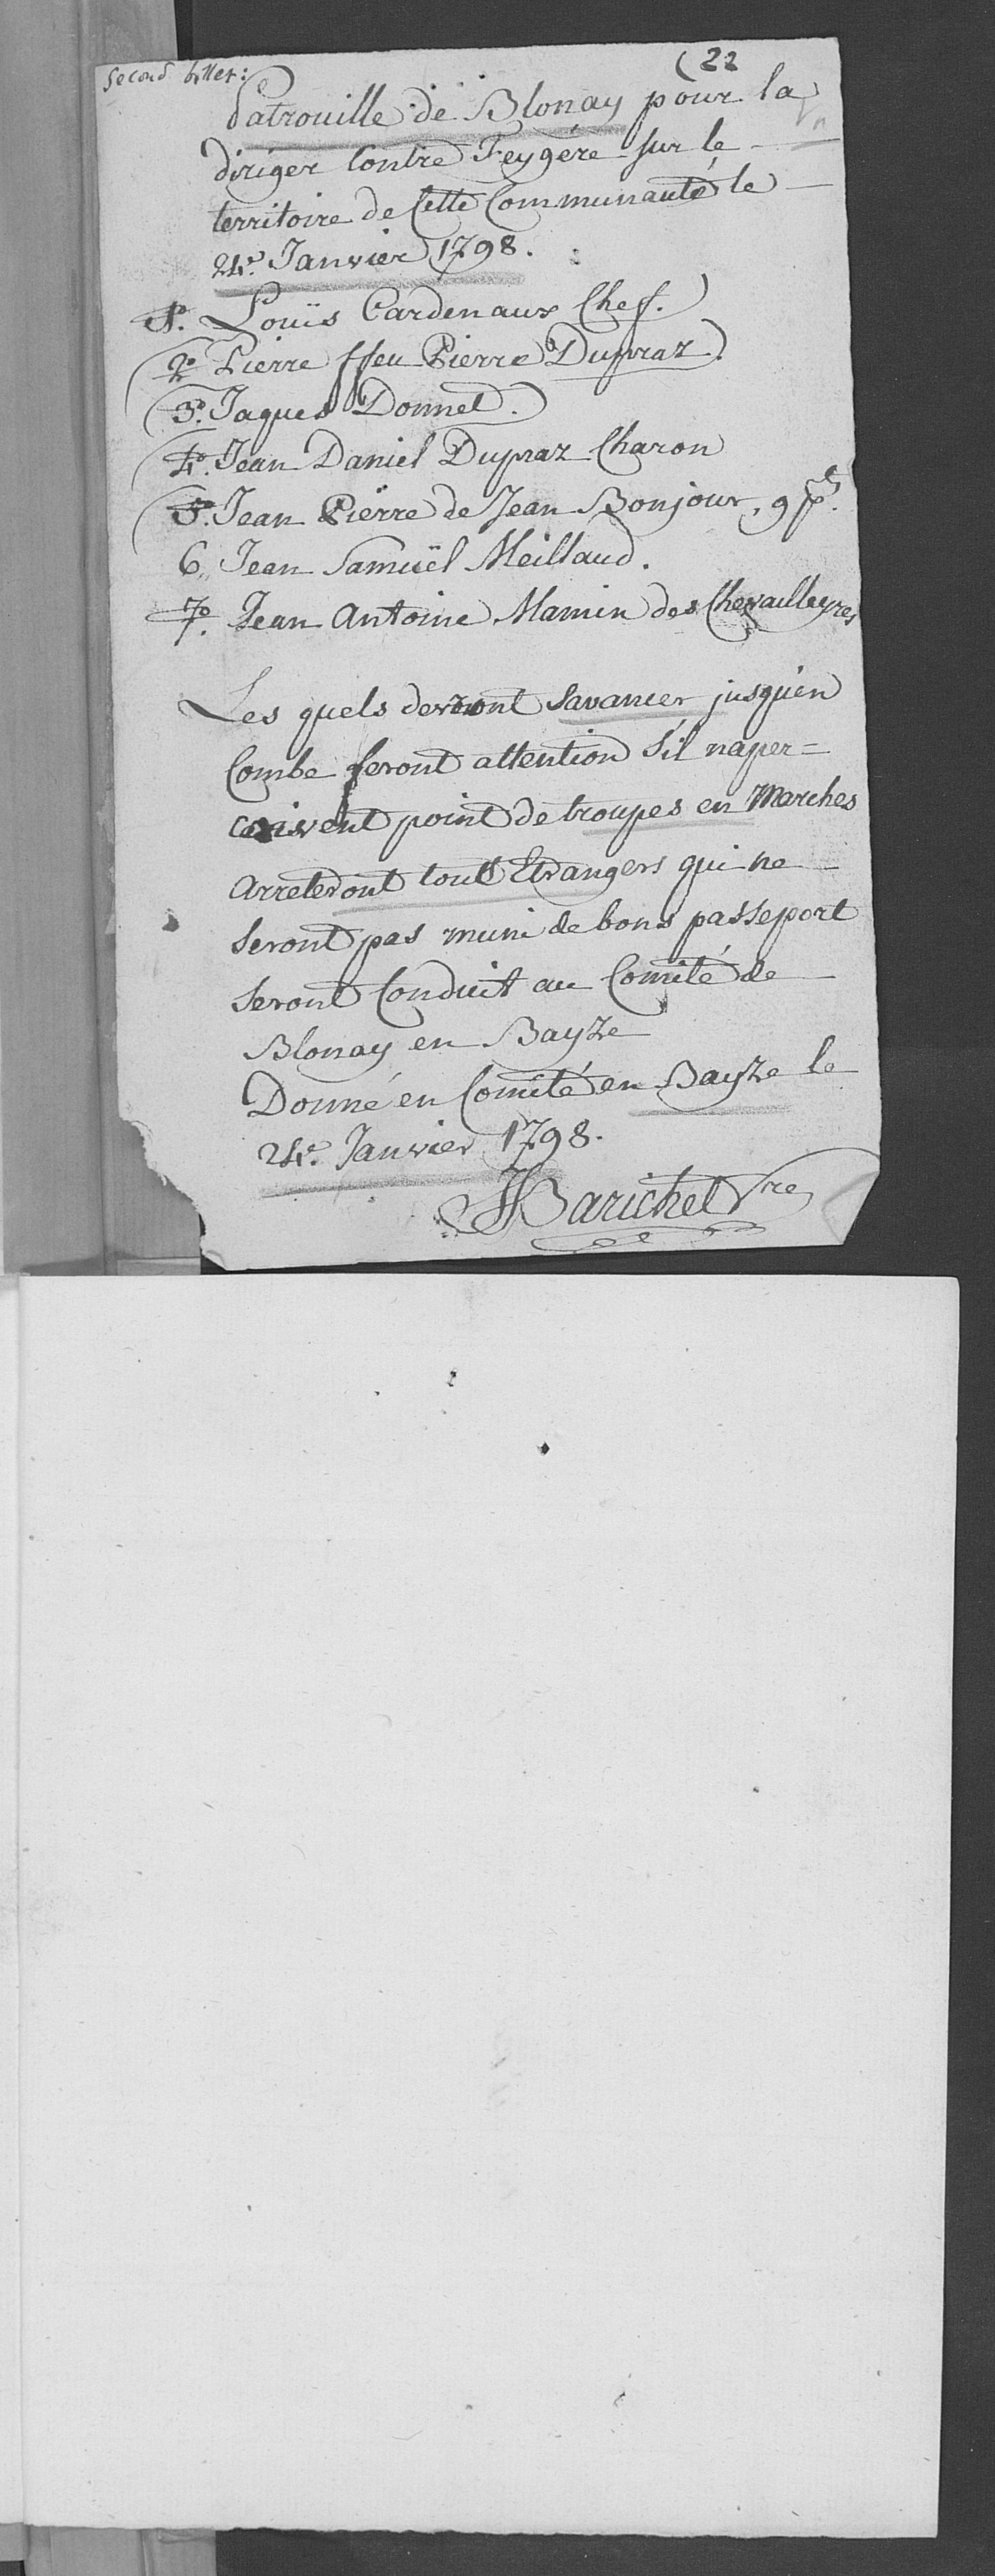 Second billet:
(22
Patrouille de Blonay pour la
diriger Contre Feygére sur le
territoire de Cette Communauté le
24e. Janvier 1798.
1o. Louïs Cardenaux Chef.
2o. Pierre ffeu Pierre Dupraz.
3o. Jaques Donnet.
4o. Jean Daniel Dupraz Charon
5o. Jean Pierre de Jean Bonjour,
6,, Jean Samuël Meillaud.
7o. Jean Antoine Mamin des Chevalleyres
Les quels devront Savancer jusquen
Combe feront attention S'il naper=
coivent point de troupes en Marches
Arreteront tout Etrangers qui ne
Seront pas muni de bons passeport
Seront Conduit au Comité de
Blonay en Bayze
Donné en Comité en Bayze le
24e. Janvier 1798.
Barichet